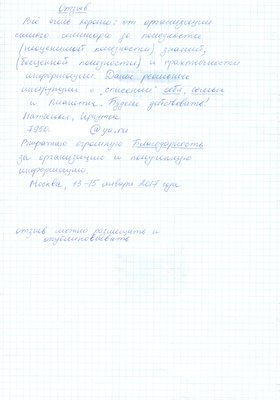 Отзыв
Всё очень хорошо: от организации
самого семинара до полезности
(неоценимой полезности) знаний,
(бесценной полезности) и практичности
информации. Даны реальные
инструкции о "спасении" себя, семьи
и Планеты. Будем действовать!
Наталья, Иркутск
7950 @ya.ru
Выражаю огромную благодарность
за организацию и полученную
информацию.
Москва, 13-15 января 2017 года
отзыв можно размещать и
опубликовывать